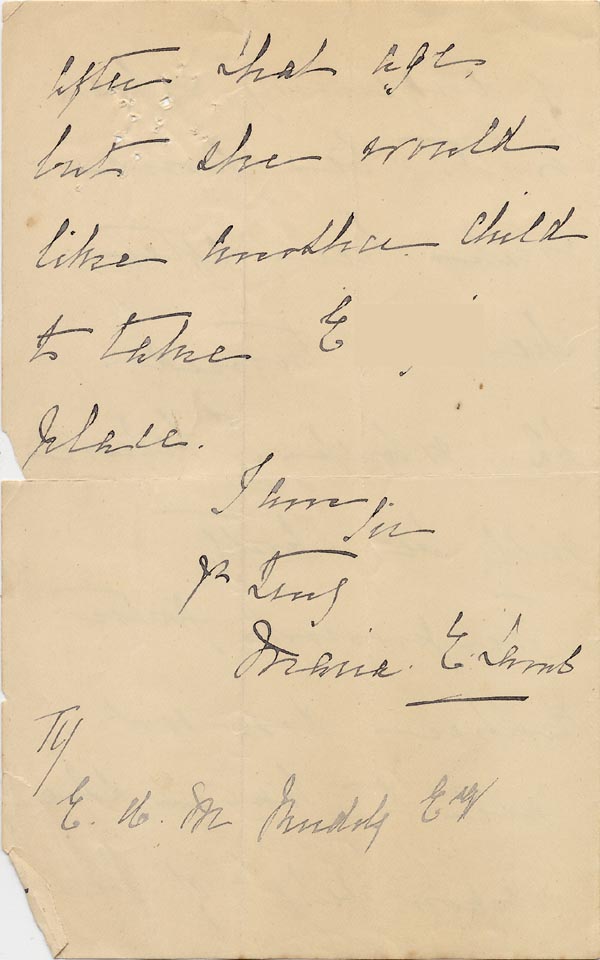 after that age,
but she would
like another child
to take E
place.
I am
Sir
yrs truly
Maria E. Lamb
To
E. de M Rudolf Esq